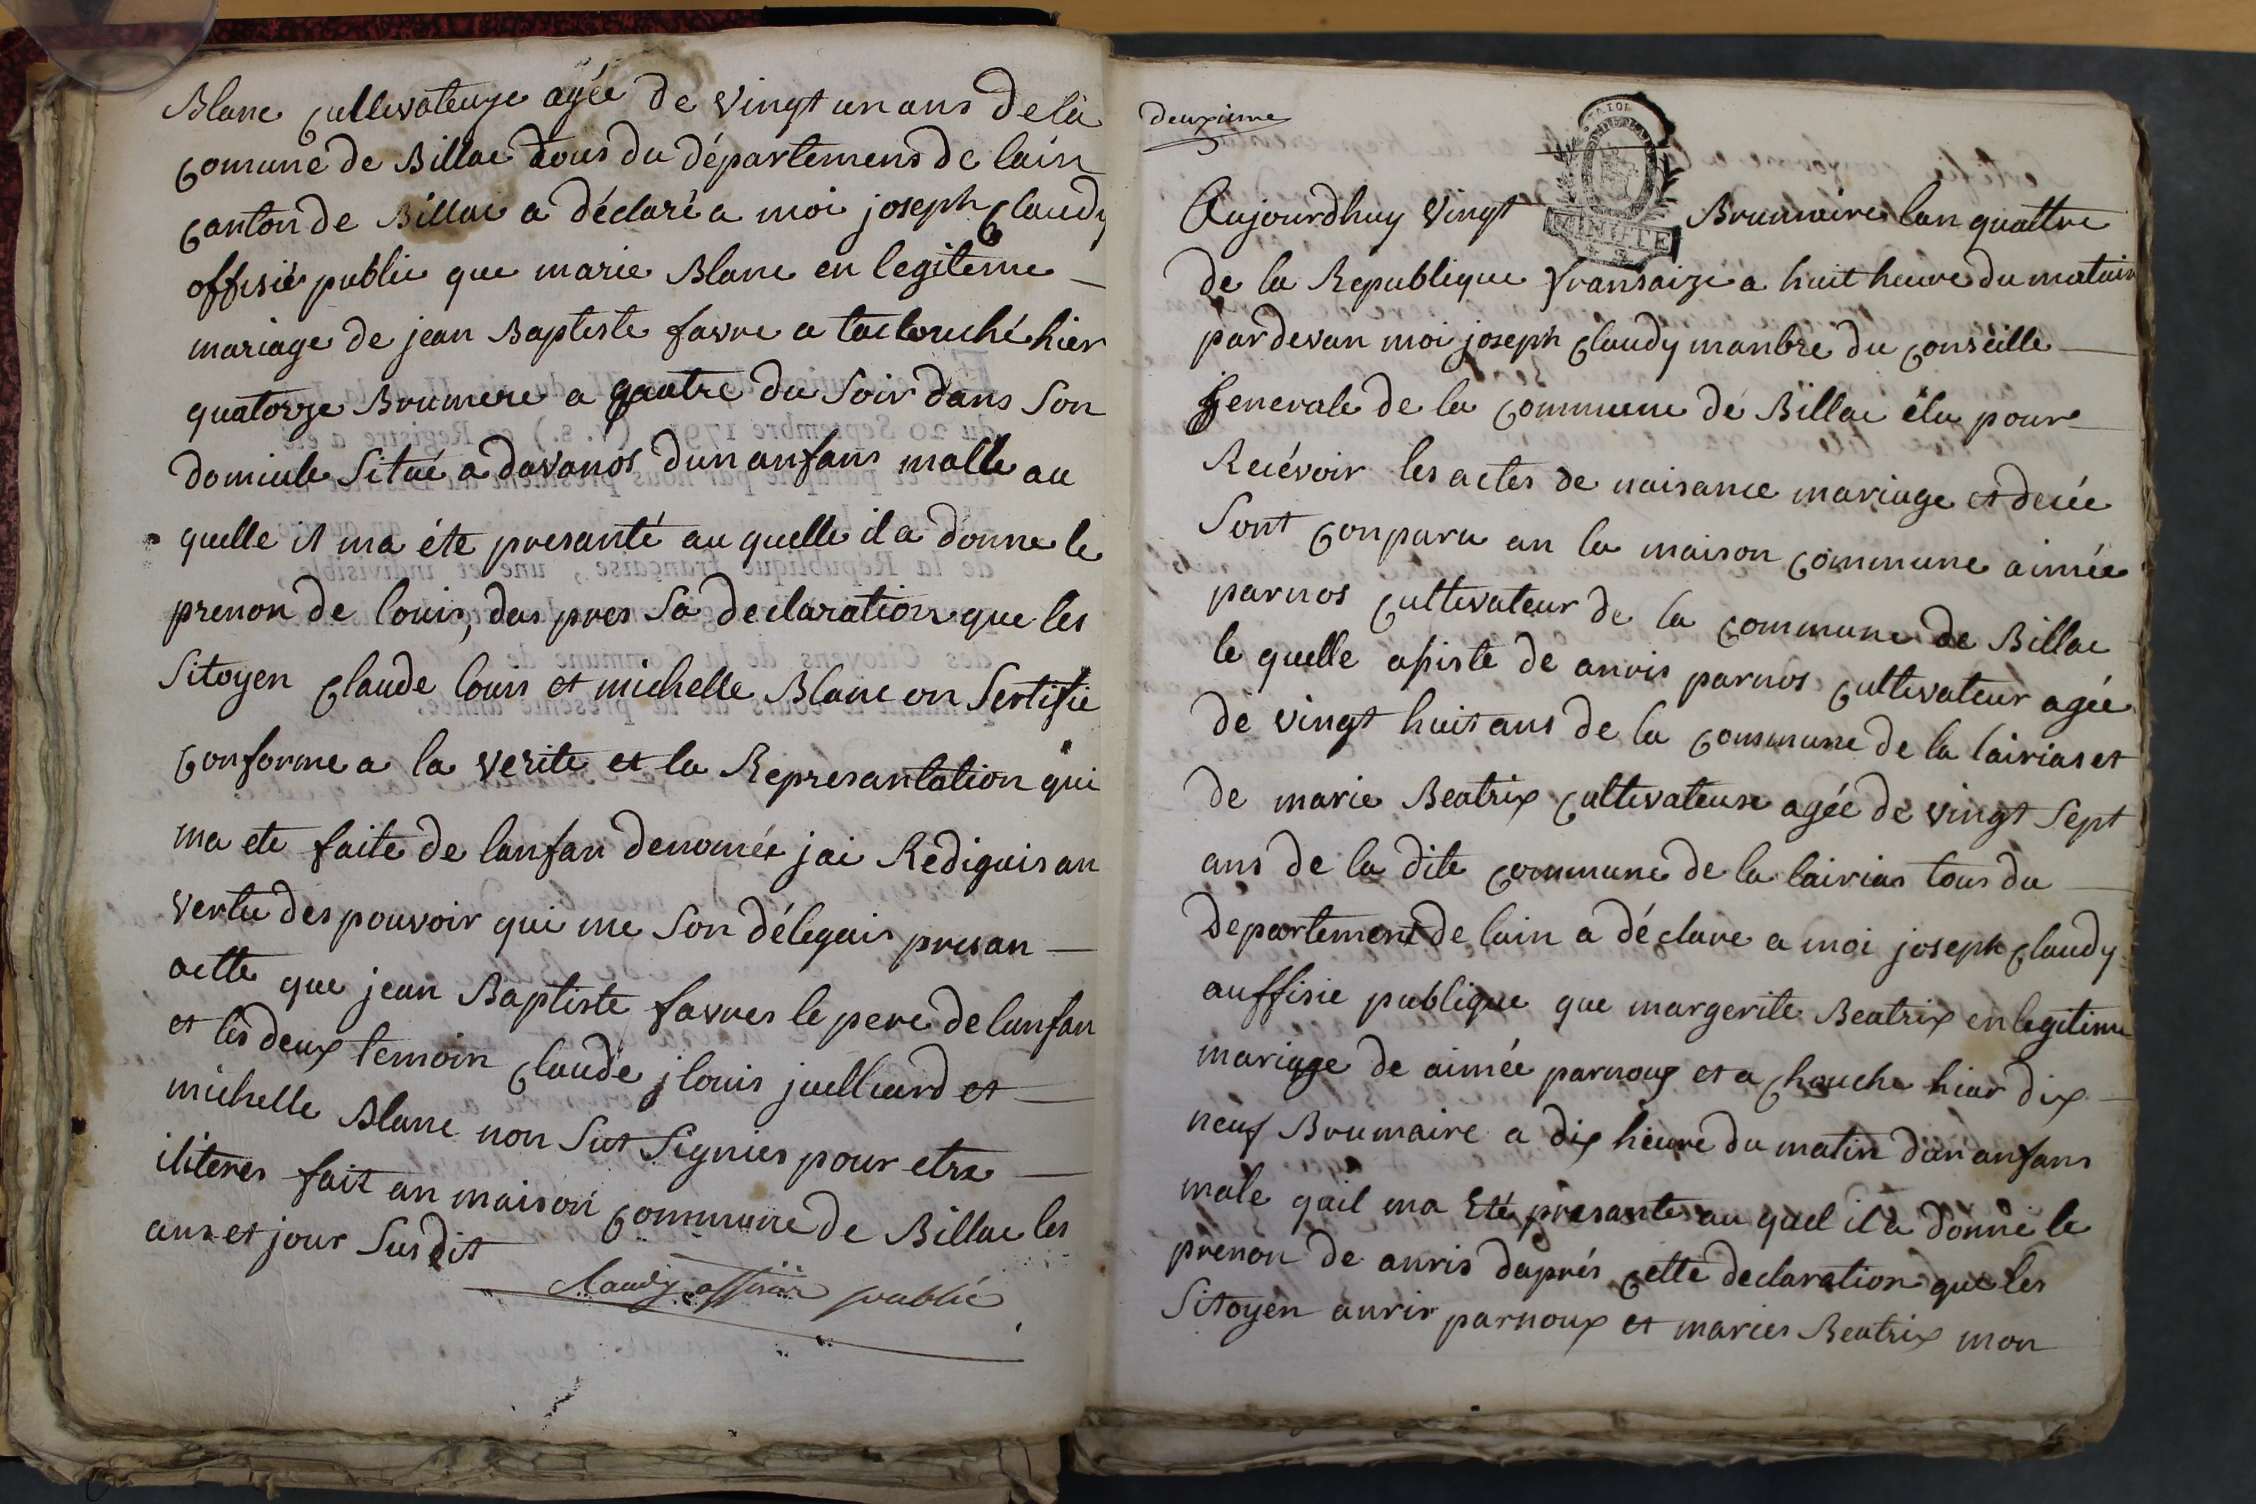 Blanc cultivateuze agée de vingt un ans de la
comune de Billac tous du départemens de lain
canton de Billac a déclaré a moi joseph Claudy
offisié public que marie Blanc en legiteme
mariage de jean Baptiste favre a taclouché hier
quatorze Brumere a qautre du Soir dans Son
domicile Situé a davanos dun anfans malle au
quelle il ma éte presanté au quelle il a donne le
prenon de louis, das pres Sa declaration que les
Sitoyen Claude louis et michelle Blanc on Sertifie
conforme a la verite et la Represantation qui
ma ete faite de lanfan denomée jai Rediguis an
vertu des pouvoir qui me Son déleguis presan
actte que jean Baptiste favres le pere de lanfan
et les deux temoin Claude jlouis juilliard et
michelle Blanc non Sut Signies pour etre
iliteres fait an maison commune de Billac les
ans et jour Susdit
Claudy offisier publié
deuxieme
Aujourdhuy vingt Brumaire lan quattre
MINUTE
de la Republique fransaize a huit heure du matain
pardevan moi joseph Claudy manbre du conseille
Generale de la commune de Billac élu pour
Recévoir les actes de naisance mariage et decée
Sont conparu an la maison commune aimée
parnos cultivateur de la commune de Billac
le quelle asiste de anris parnos cultivateur agée
de vingt huit ans de la commune de la lairias et
de marie Beatrix cultivateuse agée de vingt Sept
ans de la dite commune de la lairias tous du
Departement de lain a déclare a moi joseph Claudy
auffisie publique que margerite Beatrix en legitime
mariage de aimée parnoux et a chouche hiar dix
neuf Brumaire a dix heure du matin dun anfans
male quil ma Eté presante au quel il a donné le
prenon de anris daprés cette declaration que les
Sitoyen anrir parnoux et maries Beatrix mon